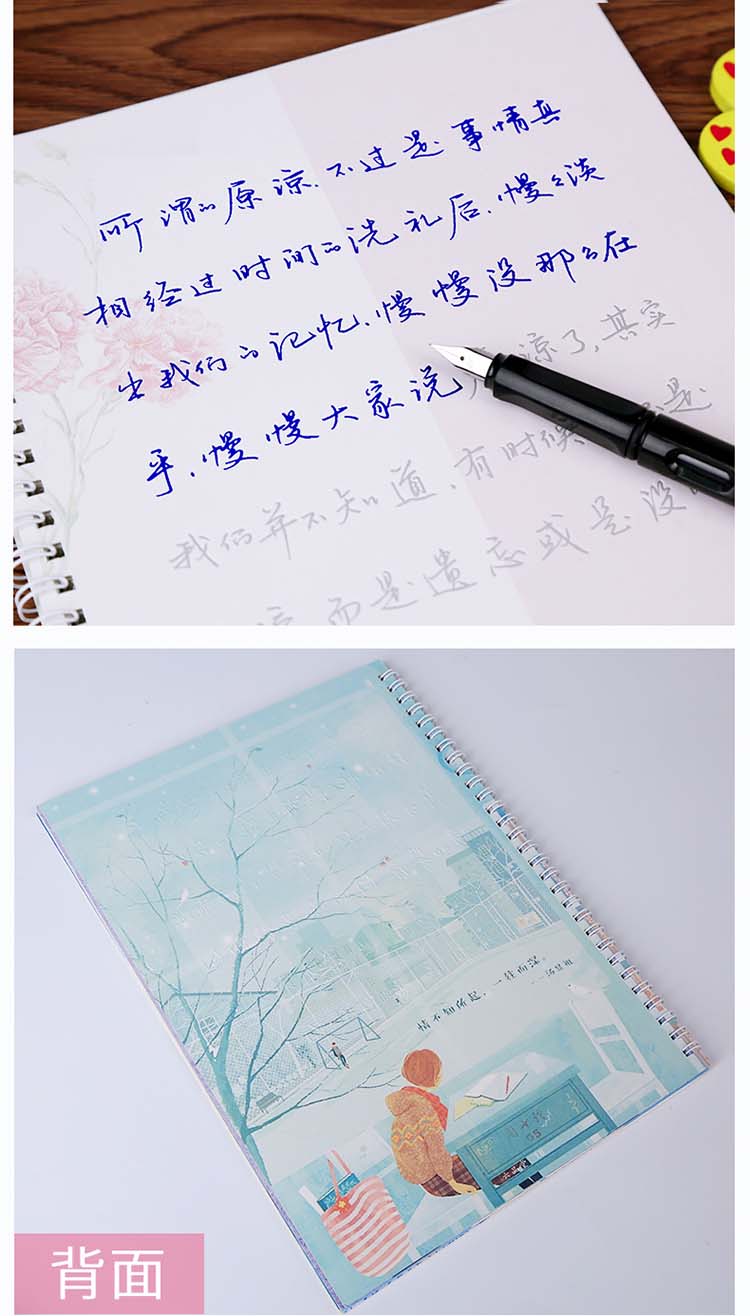 所谓的原谅,不过是事情真
相经过时间的洗礼后,慢慢淡
出我们的记忆,慢慢没那么在
乎,慢慢大家说 谅了,其实
我们并不知道,有时候 是
谅而是遗忘或是没
情不知所起,一往而深。
背面